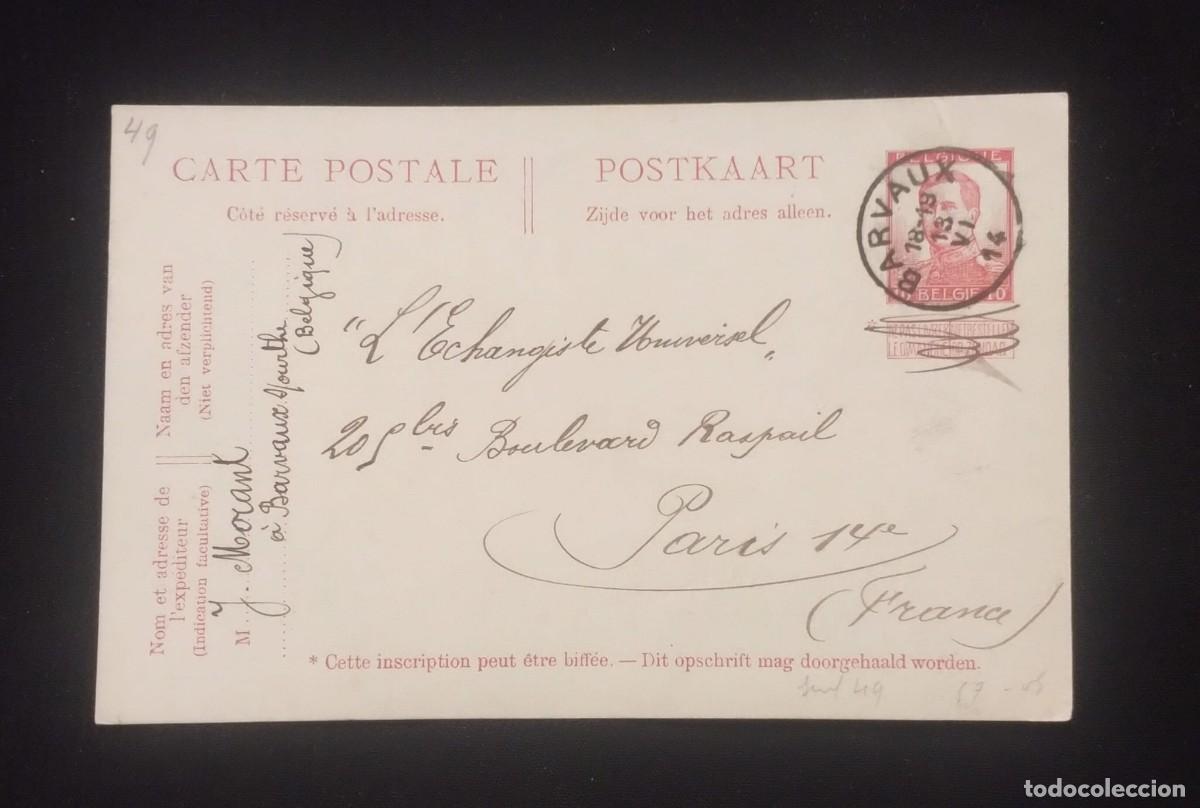 49
CARTE POSTALE
Côté réservé à l'adresse.
POSTKAART
Zijde voor het adres alleen.
BELGIQUE
BELGIË 10
BARVAUX
18-19
13
VI
14
Naam en adres van
den afzender
(Niet verplichtend)
Nom et adresse de
l'expéditeur
(Indication facultative)
M
J. Morant
à Barvaux s/Ourthe
(Belgique)
"L'Echangiste Universel"
205 bis Boulevard Raspail
Paris 14e
(France)
* Cette inscription peut être biffée. — Dit opschrift mag doorgehaald worden.
49
todocoleccion